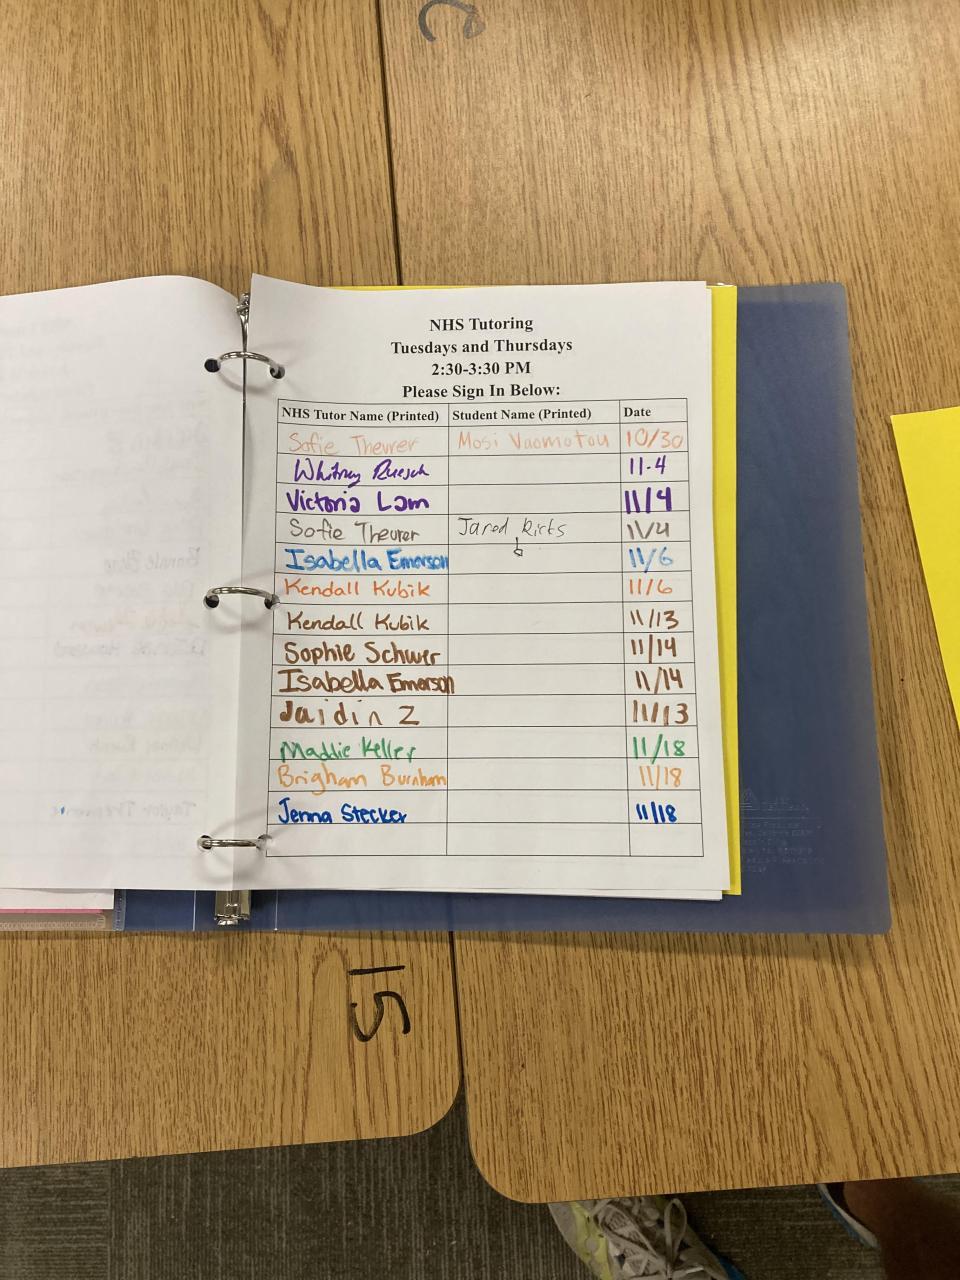 C
NHS Tutoring
Tuesdays and Thursdays
2:30-3:30 PM
Please Sign In Below:
NHS Tutor Name (Printed) Student Name (Printed) Date
Sofie Theurer Mosi Vaomotou 10/30
Whitney Ruesch 11-4
Victoria Lam 11/4
Sofie Theurer Jared Ricks 11/4
Isabella Emerson 11/6
Kendall Kubik 11/6
Kendall Kubik 11/13
Sophie Schwer 11/14
Isabella Emerson 11/14
Jaidin Z 11/13
Maddie Keller 11/18
Brigham Burnham 11/18
Jenna Stecker 11/18
15